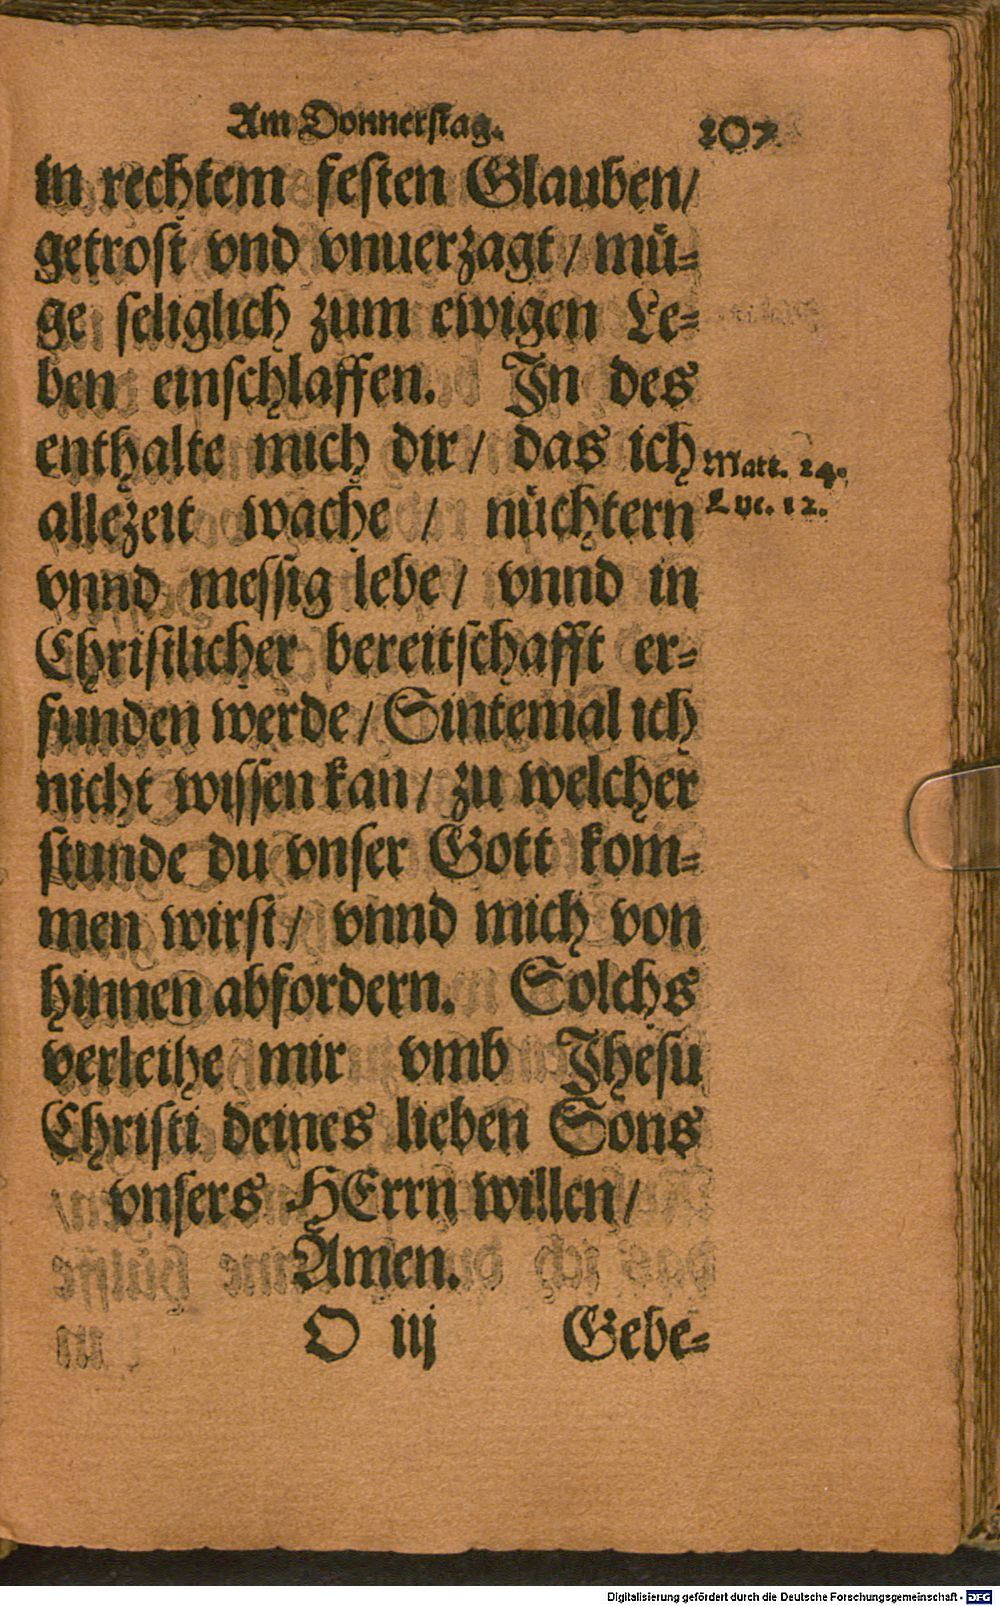 Am Donnerstag. 107
in rechtem festen Glauben/
getrost vnd vnuerzagt / mü-
ge seliglich zum ewigen Le-
ben einschlaffen. In des
enthalte mich dir / das ich
Matt. 24.
allezeit wache / nüchtern
Luc. 12.
vnnd messig lebe / vnnd in
Christlicher bereitschafft er-
funden werde / Sintemal ich
nicht wissen kan / zu welcher
stunde du vnser Gott kom-
men wirst / vnnd mich von
hinnen abfordern. Solchs
verleihe mir vmb Jhesu
Christi deines lieben Sons
vnsers HErrn willen /
Amen.
O iij Gebe-
Digitalisierung gefördert durch die Deutsche Forschungsgemeinschaft - DFG